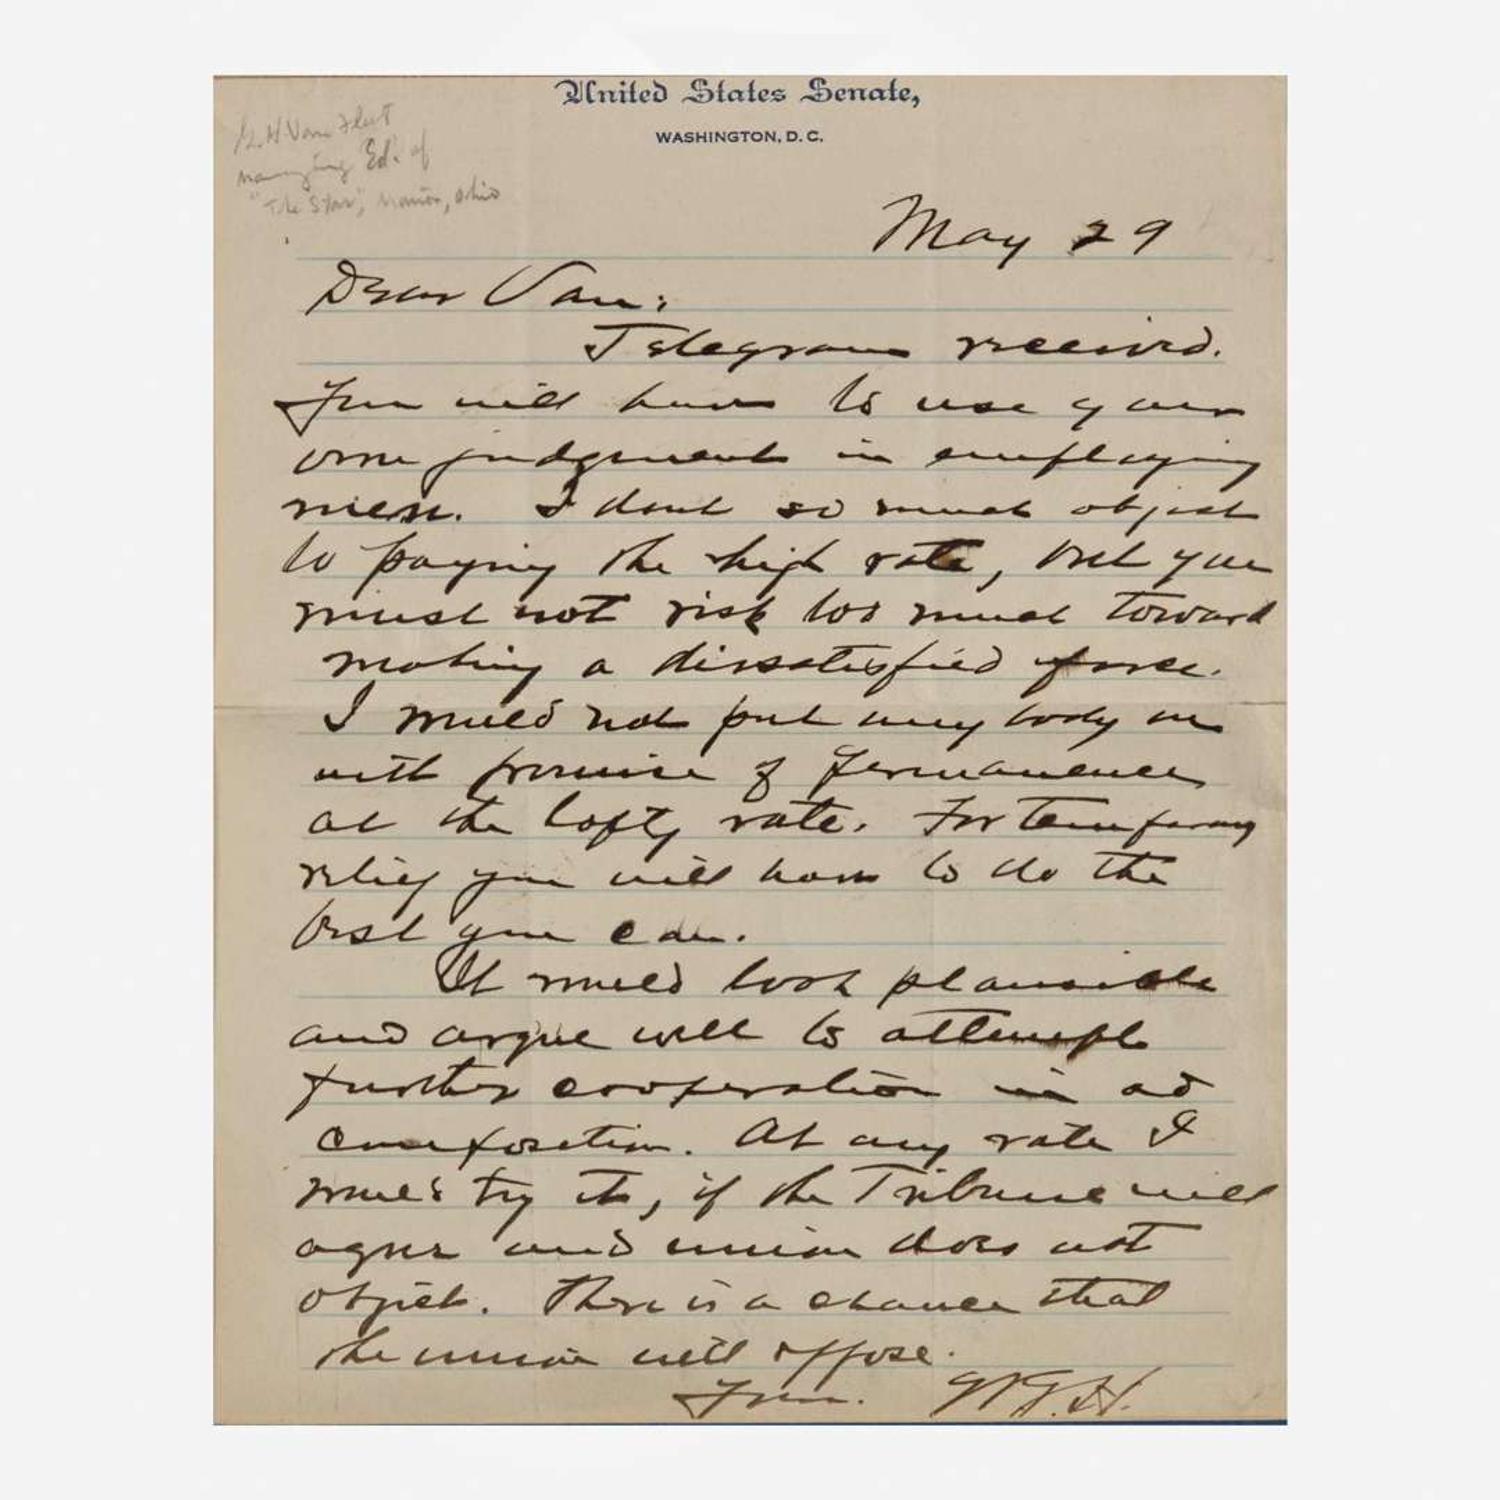 United States Senate,
WASHINGTON, D. C.
G. H. Van Fleet
managing Ed. of
"The Star", Marion, Ohio
May 29
Dear Van:
Telegram received.
You will have to use your
own judgment in employing
men. I dont so much object
to paying the high rate, but you
must not risk too much toward
making a dissatisfied force.
I would not put any body on
with promise of permanence
at the lofty rate. For temporary
relief you will have to do the
best you can.
It would look plausible
and argue well to attempt
further cooperation in ad
composition. At any rate I
would try it, if the Tribune will
agree and union does not
object. There is a chance that
the union will oppose.
Yours. W.G.H.